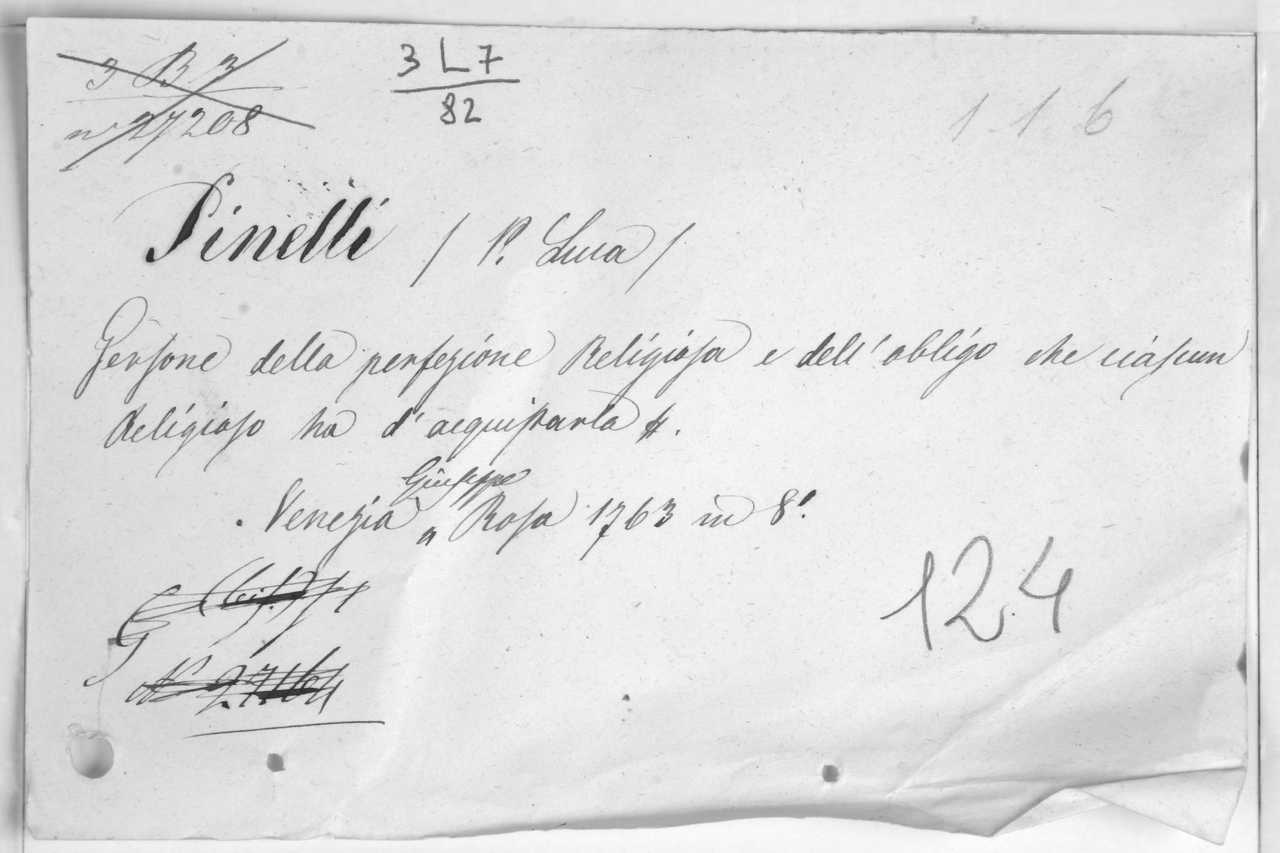 3 B 3
n° 27208
3 L 7
82
1 1 6
Pinelli / P. Luca /
Gersone della perfezione Religiosa e dell'obligo che ciascun
Religioso ha d'acquistarla
Giuseppe
Venezia a Rosa 1763 in 8°.
124
N° 27164